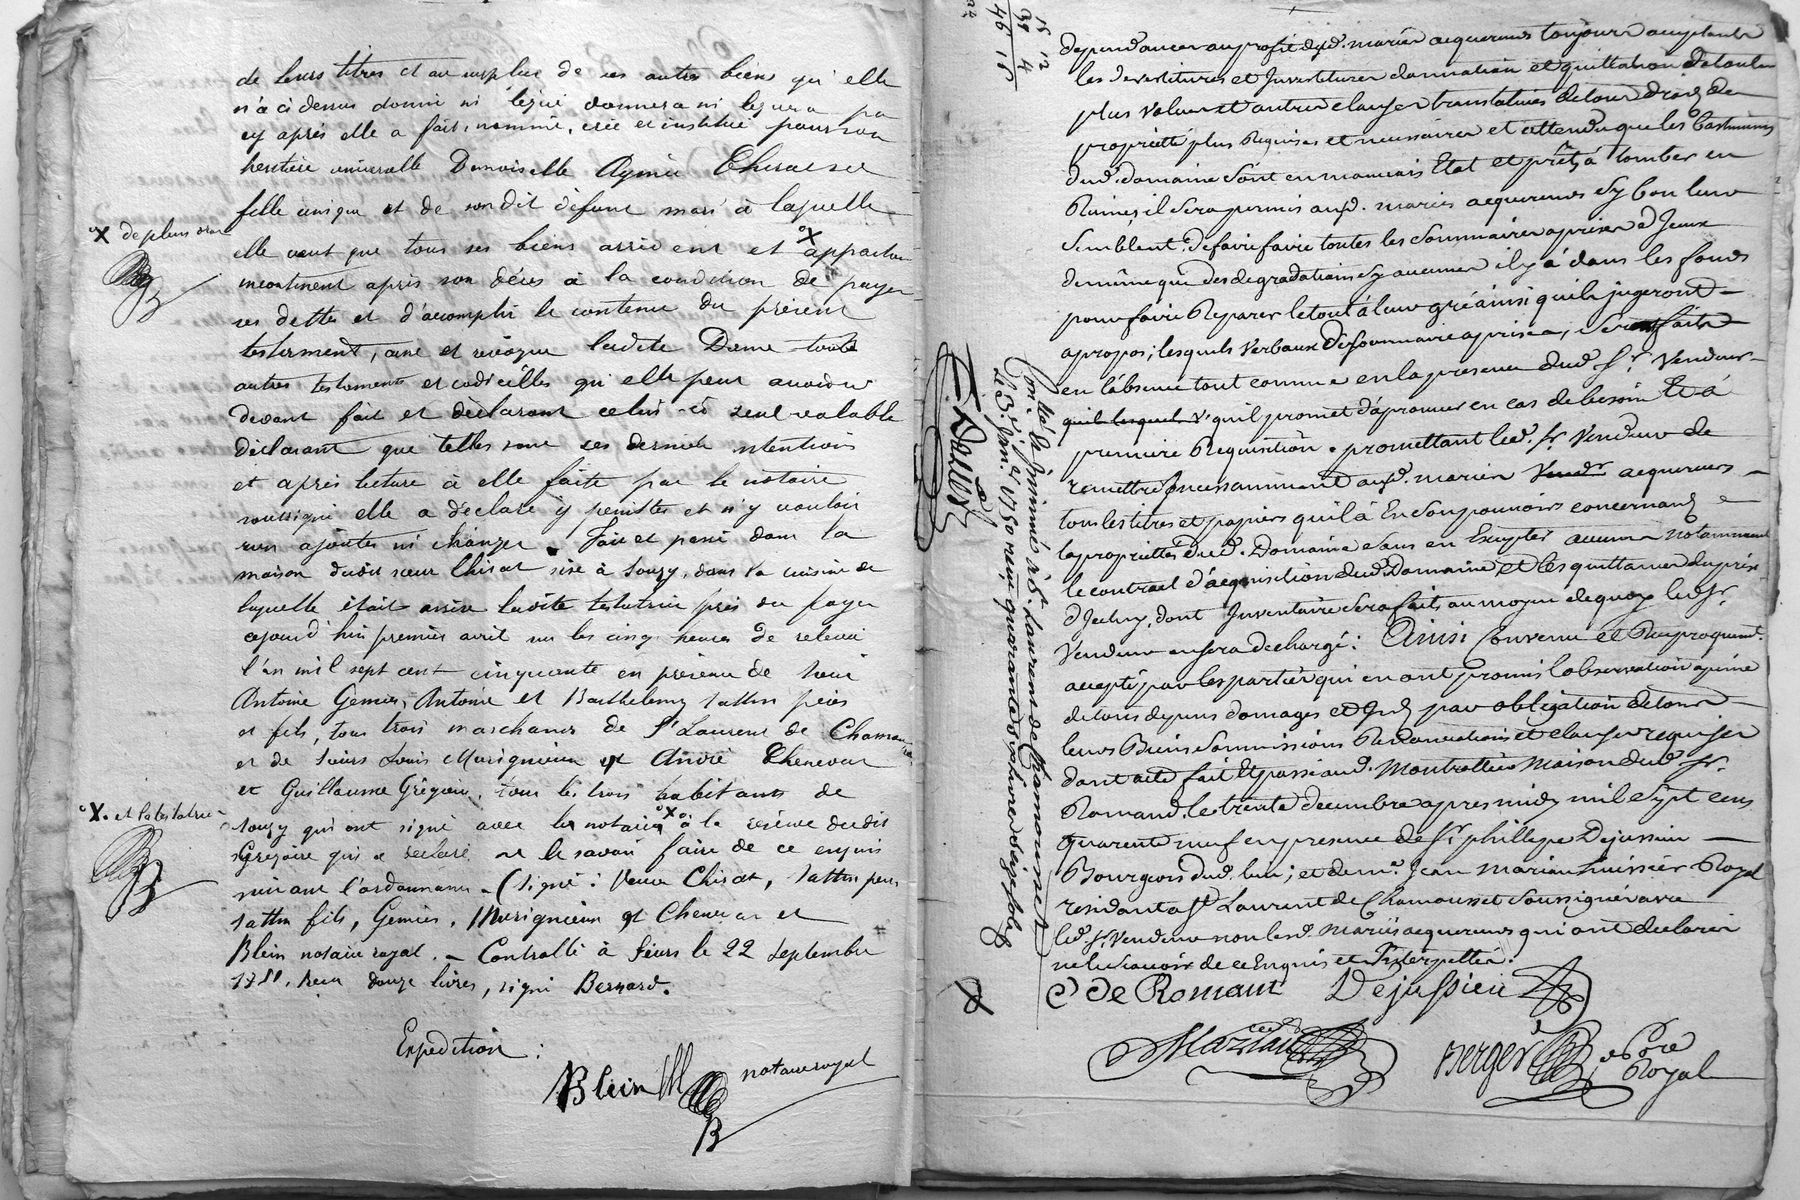 de leurs titres et au surplus de ses autres biens qu'elle
n'a ci dessus donné ni légué donnera ni leguera pa
cy après elle a fait, nommé, créé et institué pour son
heritière universelle Demoiselle Aymée
fille unique et de son dit défunt mari à laquelle
elle veut que tous ses biens arrivent et X
X de plein droit
incontinent après son décès à la condition de payer
ses dettes et d'accomplir le contenu du présent
testament, casse et révoque ladite Dame toute
autres testaments et codicilles qu'elle peut avoir
devant fait et déclarant celui-ci seul valable
Déclarant que telles sont ses dernières intentions
et après lecture à elle faite par le notaire
soussigné elle a déclaré y persister et n'y vouloir
rien ajouter ni changer. Fait et passé dans la
maison dudit sieur Chirat sise à Souzy, dans la cuisine de
laquelle était assise ladite testatrice près du foyer
cejourd'hui premier avril sur les cinq heures de relevé
l'an mil sept cent cinquante en présence de sieur
Antoine Gemier, Antoine et Barthelemy pères
et fils, tous trois marchands de St Laurent de Chamousset
et de sieurs Louis et André Chenevar
et Guillaume Grégoire, tous les trois habitants de
X. et la testatrice
Souzy qui ont signé avec le notaire X à la réserve dudit
Grégoire qui a déclaré ne le savoir faire de ce enquis
suivant l'ordonnance. (signé: Veuve Chirat, père
fils, Gemier, et Chenevar et
Blein notaire royal. - Controllé à le 22 Septembre
1750. Recu douze livres, signé Bernard.
Expedition:
Blein notaire royal
B
15 12
39 4
46 16
dependances au profit desd. mariés acquereurs toujours acceptants
les devestitures et Investitures donnation et quittation de toutes
plus values et autres clauses translatives de tous droits de
propriette plus Requises et necessaires et attendu que les Bastiments
dud. domaine sont en mauvais Etat et prêts à tomber en
Ruines, il sera permis aud. mariés acquereurs sy bon leur
semblent de faire faire toutes les sommaires aprises d Jceux
de même que des degradations sy aucunes il y à dans les fonds
pour faire Reparer le tout à leur gré ainsi quils jugeront
apropos; lesquels verbaux de sommaire aprisea, seront faits
en l'absence tout comme en la presence dud. Sr. Vendeur
qu'il promet d'aprouver en cas de besoin Et à
premiere Requisition. promettant led. Sr. Vendeur de
remettre Incessamment aud. mariés acquereurs
tous les titres et papiers quil à En son pouvoir concernant
la propriettés dud. Domaine sans en Excepter aucuns notamment
le contract d'acquisition dud. Domaine, et les quittances du prix
d'Jceluy, dont Inventaire sera fait, au moyen de quoy led. Sr.
Vendeur en sera dechargé: Ainsi Convenu et Reciproquemt.
accepté par les parties qui en ont promis l'observation a peine
de tous depens domages et Jnt par obligation de tous
leurs Biens soummissions Renonciations et clauses requises
dont acte fait Et passé aud. Montrottier Maison dud. Sr.
Romand, le trente decembre apres midy mil sept cens
quarente neuf en presence de Sr. phillippe Dejussieu
Bourgeois dud. lieu; et de me. Jean Marian huissier Royal
residant a St Laurent de Chamousset soussignés avec
led. Sr. Vendeur non lesd. Mariés acquereurs qui ont declarés
ne le scavoir de ce Enquis et Interpellés.
De Romant Dejussieu
Marian Berger Nore Royal
Conllé & Insinué à St. Laurent de Chamousset
le 13e janer 1750 reçu quarante six livres seize sols
X